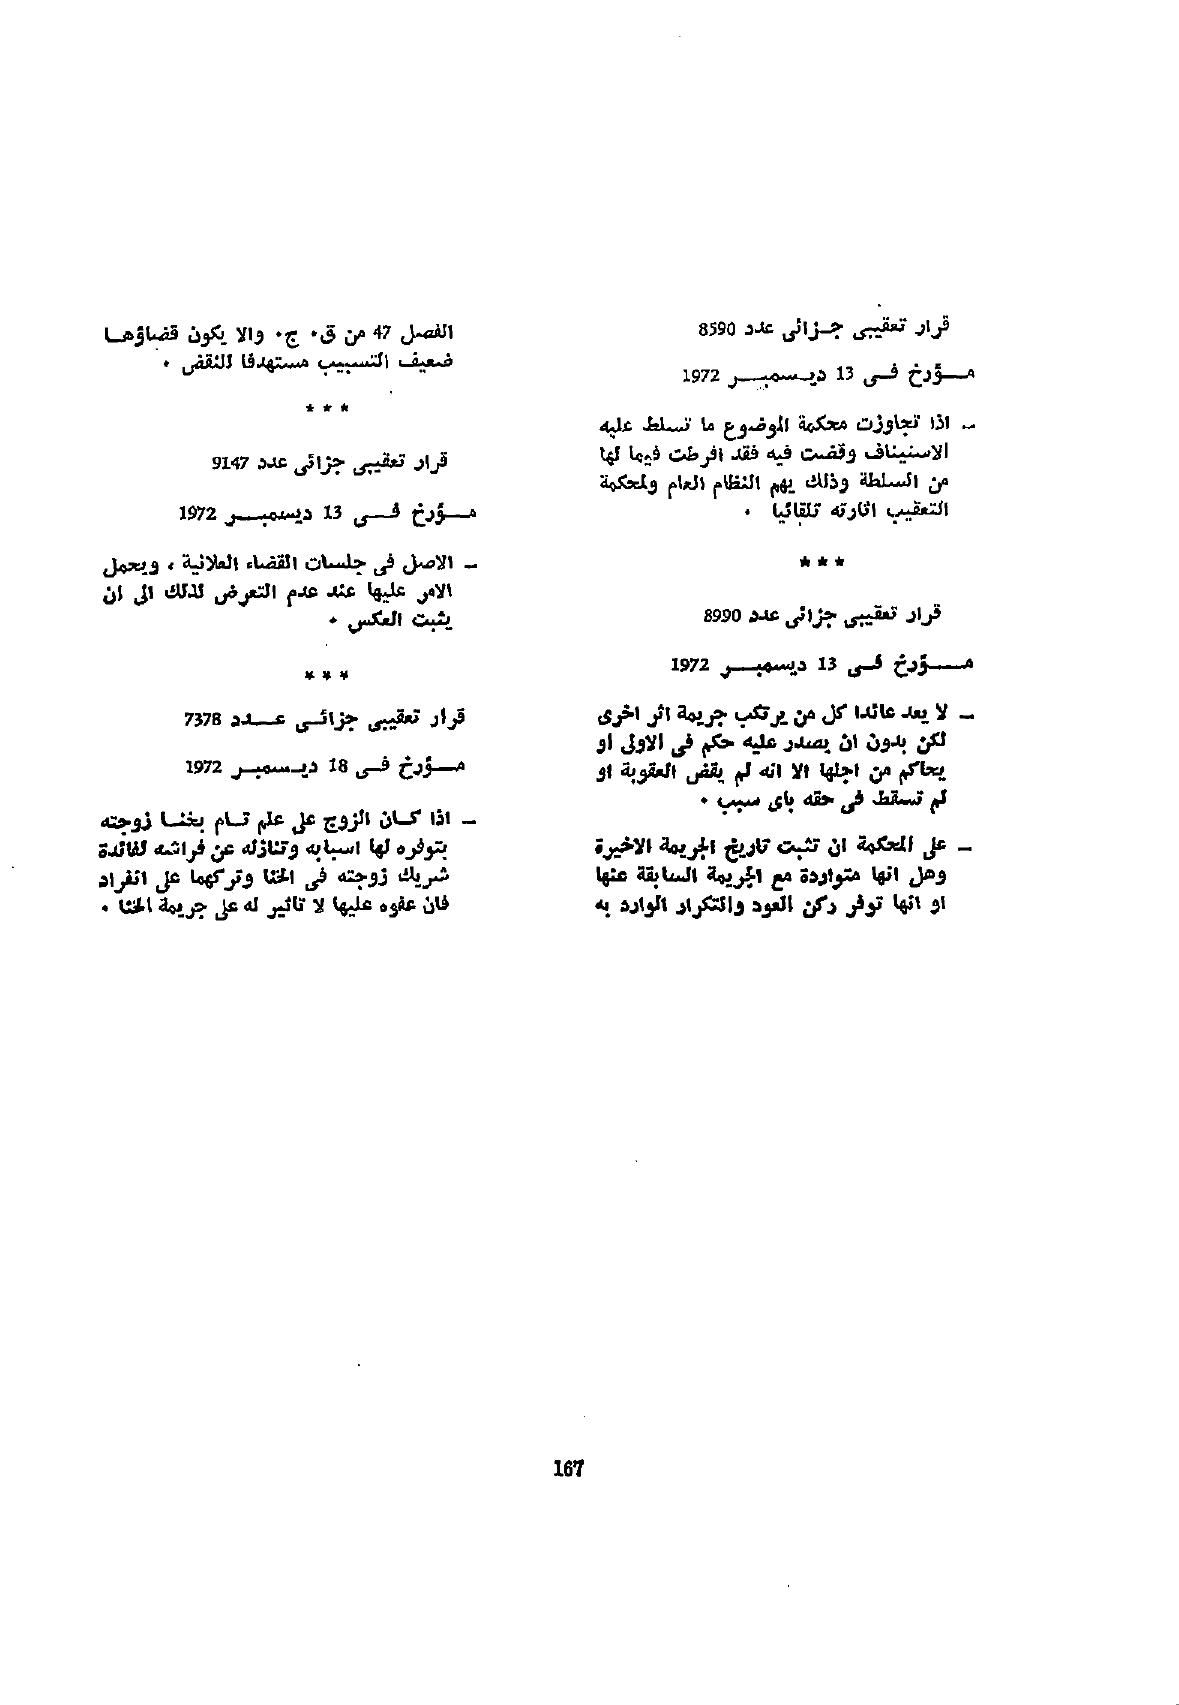 قرار تعقيبى جـزائى عدد 8590
مـــؤرخ فـــى 13 ديـسمبـــر 1972
ـ اذا تجاوزت محكمة الموضوع ما تسلط عليه
الاستيناف وقضت فيه فقد افرطت فيما لها
من السلطة وذلك يهم النظام العام ولمحكمة
التعقيب اثارته تلقائيا .
* * *
قرار تعقيبى جزائى عدد 8990
مـــؤرخ فـــى 13 ديسمبـــر 1972
ـ لا يعد عائدا كل من يرتكب جريمة اثر اخرى
لكن بدون ان يصدر عليه حكم فى الاولى او
يحاكم من اجلها الا انه لم يقض العقوبة او
لم تسقط فى حقه باى سبب .
ـ على المحكمة ان تثبت تاريخ الجريمة الاخيرة
وهل انها متواردة مع الجريمة السابقة عنها
او انها توفر ركن العود والتكرار الوارد به
الفصل 47 من ق. ج. والا يكون قضاؤهـا
ضعيف التسبيب مستهدفا للنقض .
* * *
قرار تعقيبى جزائى عدد 9147
مـــؤرخ فـــى 13 ديسمبـــر 1972
ـ الاصل فى جلسات القضاء العلانية ، ويحمل
الامر عليها عند عدم التعرض لذلك الى ان
يثبت العكس .
* * *
قرار تعقيبى جزائـى عـــدد 7378
مـــؤرخ فـــى 18 ديـسمبـــر 1972
ـ اذا كـان الزوج على علم تـام بخنـا زوجته
بتوفره لها اسبابه وتنازله عن فراشه لفائدة
شريك زوجته فى الخنا وتركهما على انفراد
فان عفوه عليها لا تاثير له على جريمة الخنا .
167